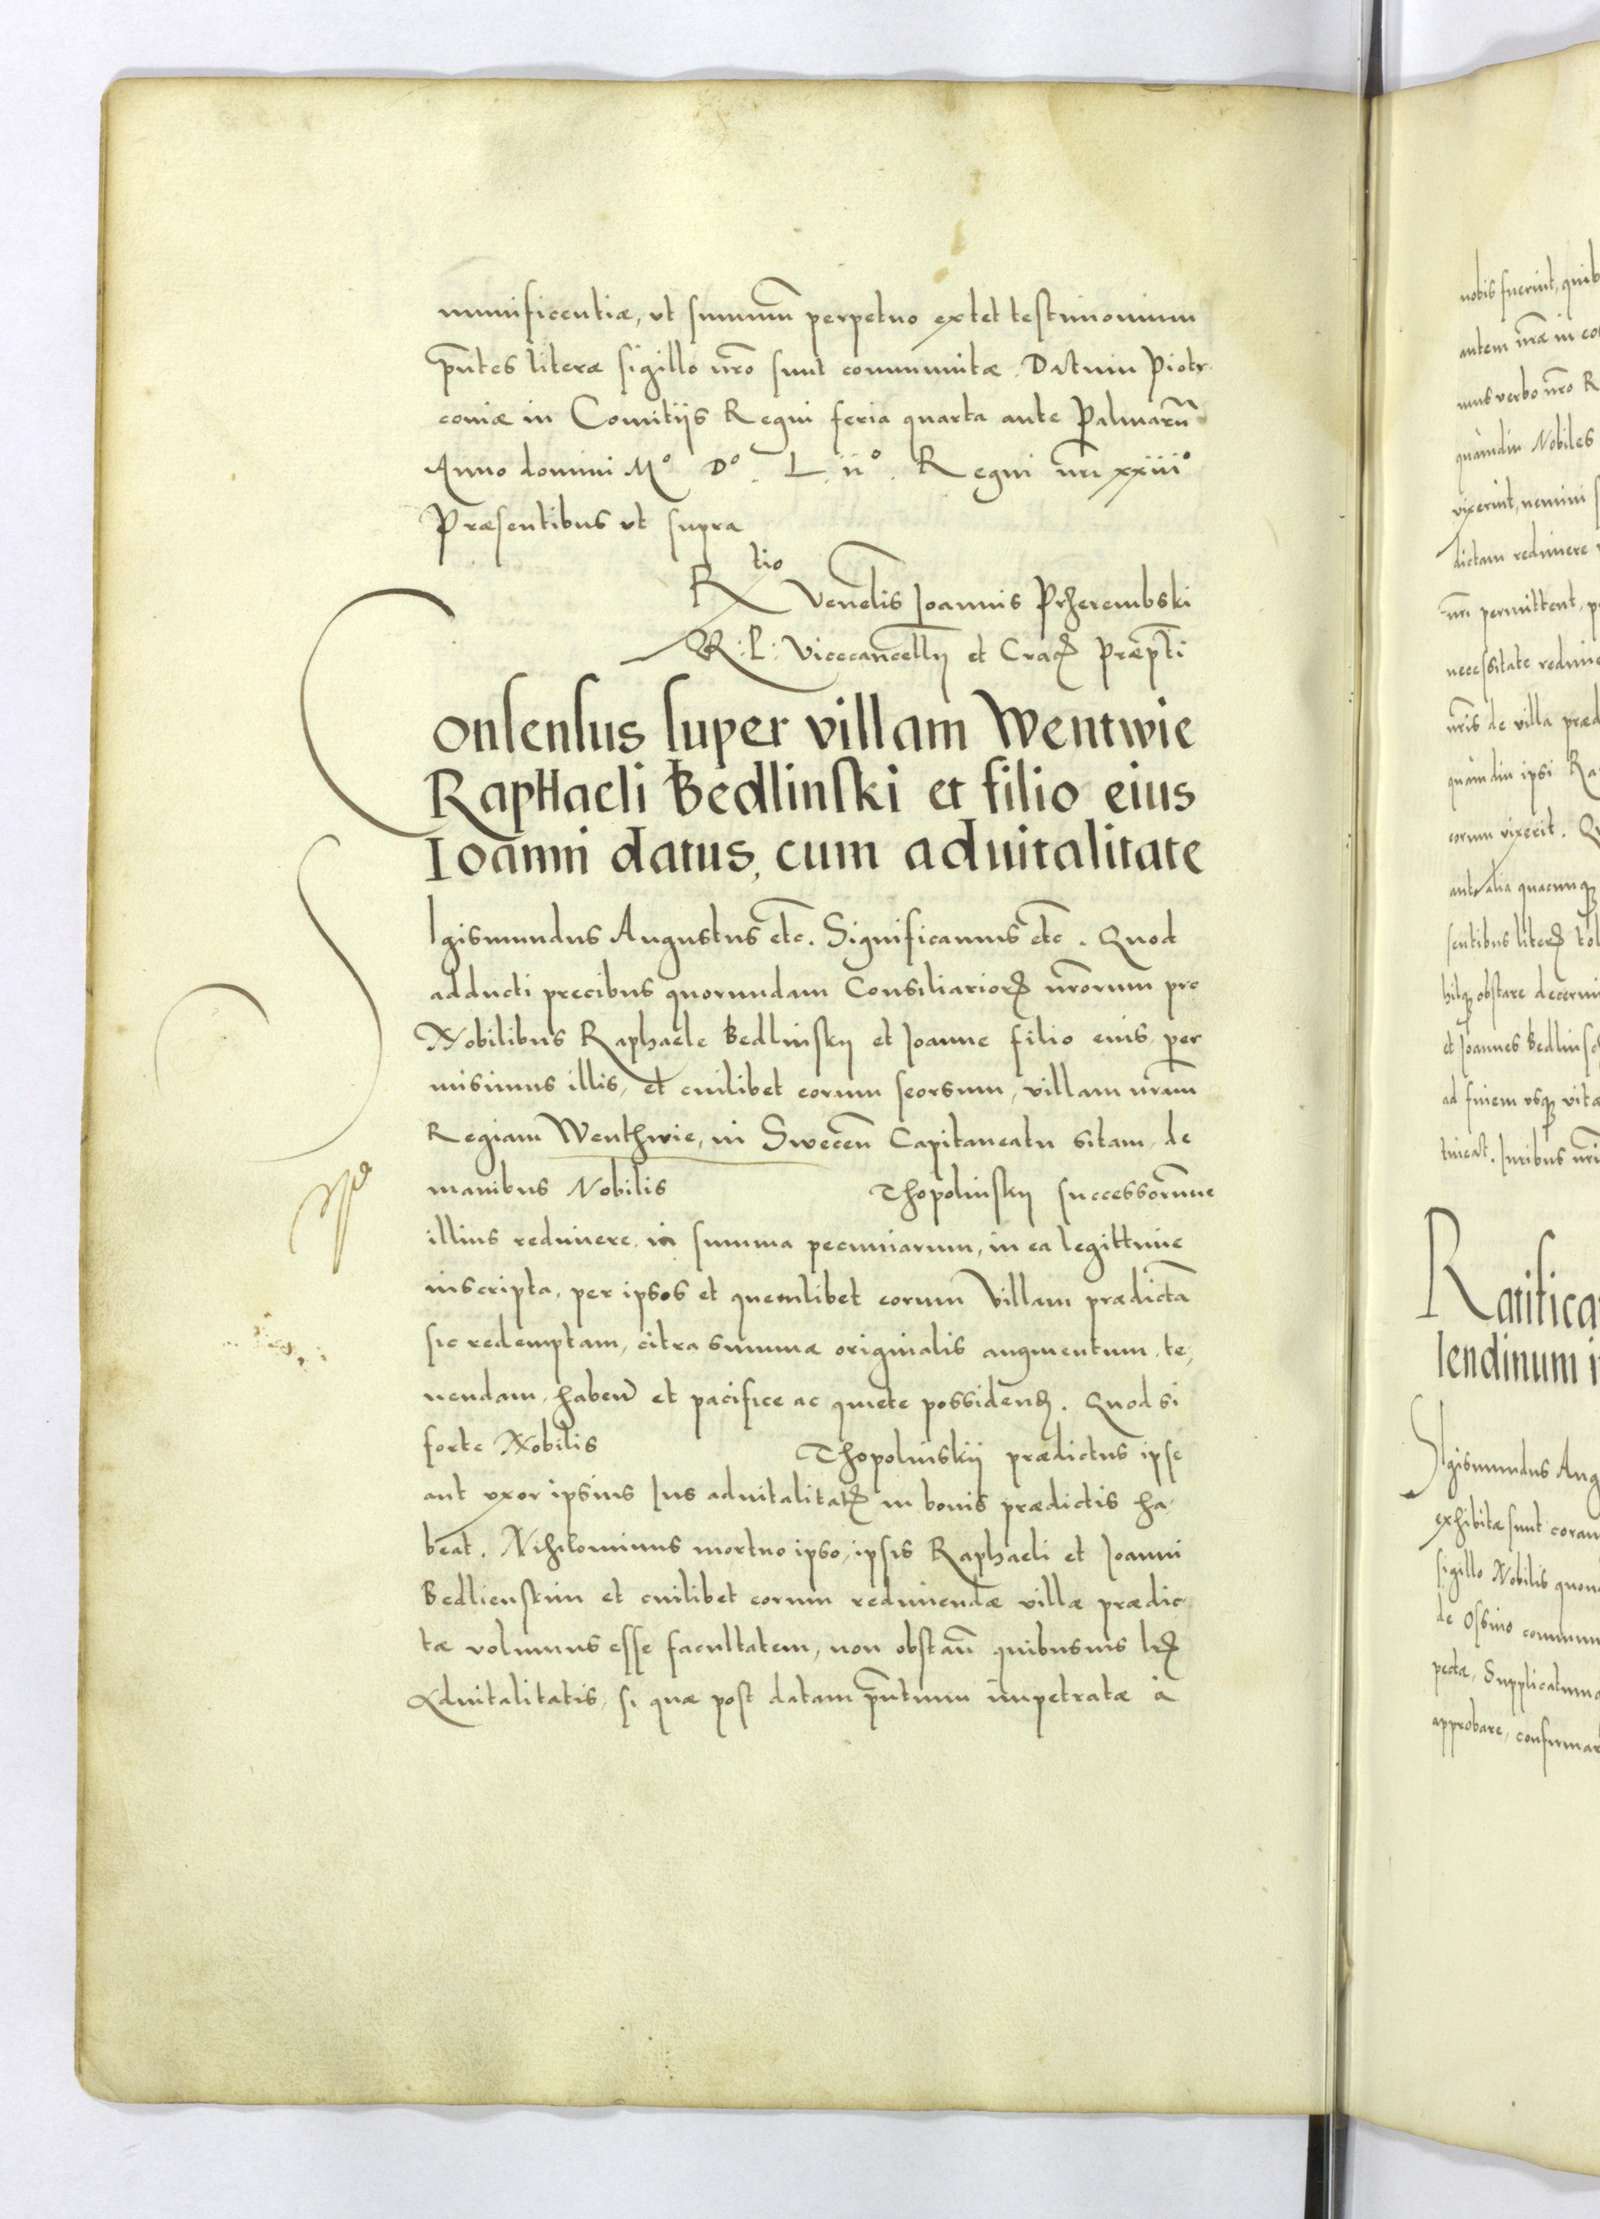 munificentiæ, ut summū perpetuo extet testimonium
p̄ntes literæ sigillo nr̄o sunt communitæ. Datum Piotr-
coniæ in Comitijs Regni feria quarta ante Palmarū
Anno domini Mº Dº. L. iiº. Regni nr̄i xxiiiº
Præsentibus ut supra
Rtio Venel̄is Joannis Przerembski
R: P: Vicecancellij et Crac̄ Præp̄ti
Consensus super villam Wentwie
Raphaeli Bedlinski et filio eius
Ioanni datus, cum aduitalitate
Sigismundus Augustus etc̄. Significamus etc̄. Quod
adducti precibus quorundam Consiliarioꝝ nr̄orum pro
Nobilibus Raphaele Bedlinskij et Joanne filio eius, per
misimus illis, et cuilibet eorum seorsum, villam nr̄am
Regiam Wenthwie, in Swecen̄ Capitaneatu sitam, de
manibus Nobilis Thopolinskij successorūue
illius redimere, in summa pecuniarum, in ea legittime
inscripta, per ipsos et quemlibet eorum Villam prædictā
sic redemptam, citra summæ originalis augmentum, te,
nendam, haben̄ et pacifice ac quiete possidenꝫ. Quod si
forte Nobilis Thopolinskij prædictus ipse
aut uxor ipsius Ius aduitalitatꝭ in bonis prædictis ha-
beat. Nihilominus mortuo ipso, ipsis Raphaeli et Joanni
Bedlienskim et cuilibet eorum redimendæ villæ prædic
tæ volumus esse facultatem, non obstan̄ quibusuis lr̄ꝭ
Aduitalitatis, si quæ post datam p̄ntium impetratæ à
nobis fuerint, quib
autem nr̄æ in co
mus verbo nr̄o R
quàmdiu Nobiles
vixerint, nemini
dictam redimere
nr̄i permittent, p
necessitate redime
nr̄is de villa præd
quàmdiu ipsi Ra
eorum vixerit. Q
aut alia quacunqꝫ
sentibus literꝭ tol
hilqꝫ obstare decerni
et Joannes Bedlinsc
ad finem usqꝫ vitæ
tineat. Iuribus nr̄i
Ratifica
lendinum i
Sigismundus Aug
exhibitæ sunt coram
sigillo Nobilis quon
de Ossino commun
pectæ, Supplicatumq
approbare, confirmar